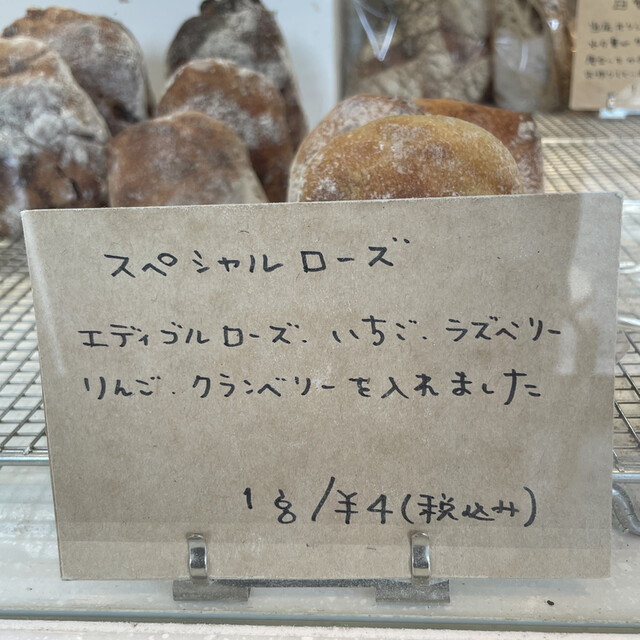 スペシャルローズ
エディブルローズ、いちご、ラズベリー
りんご、クランベリーを入れました
1g/¥4(税込み)